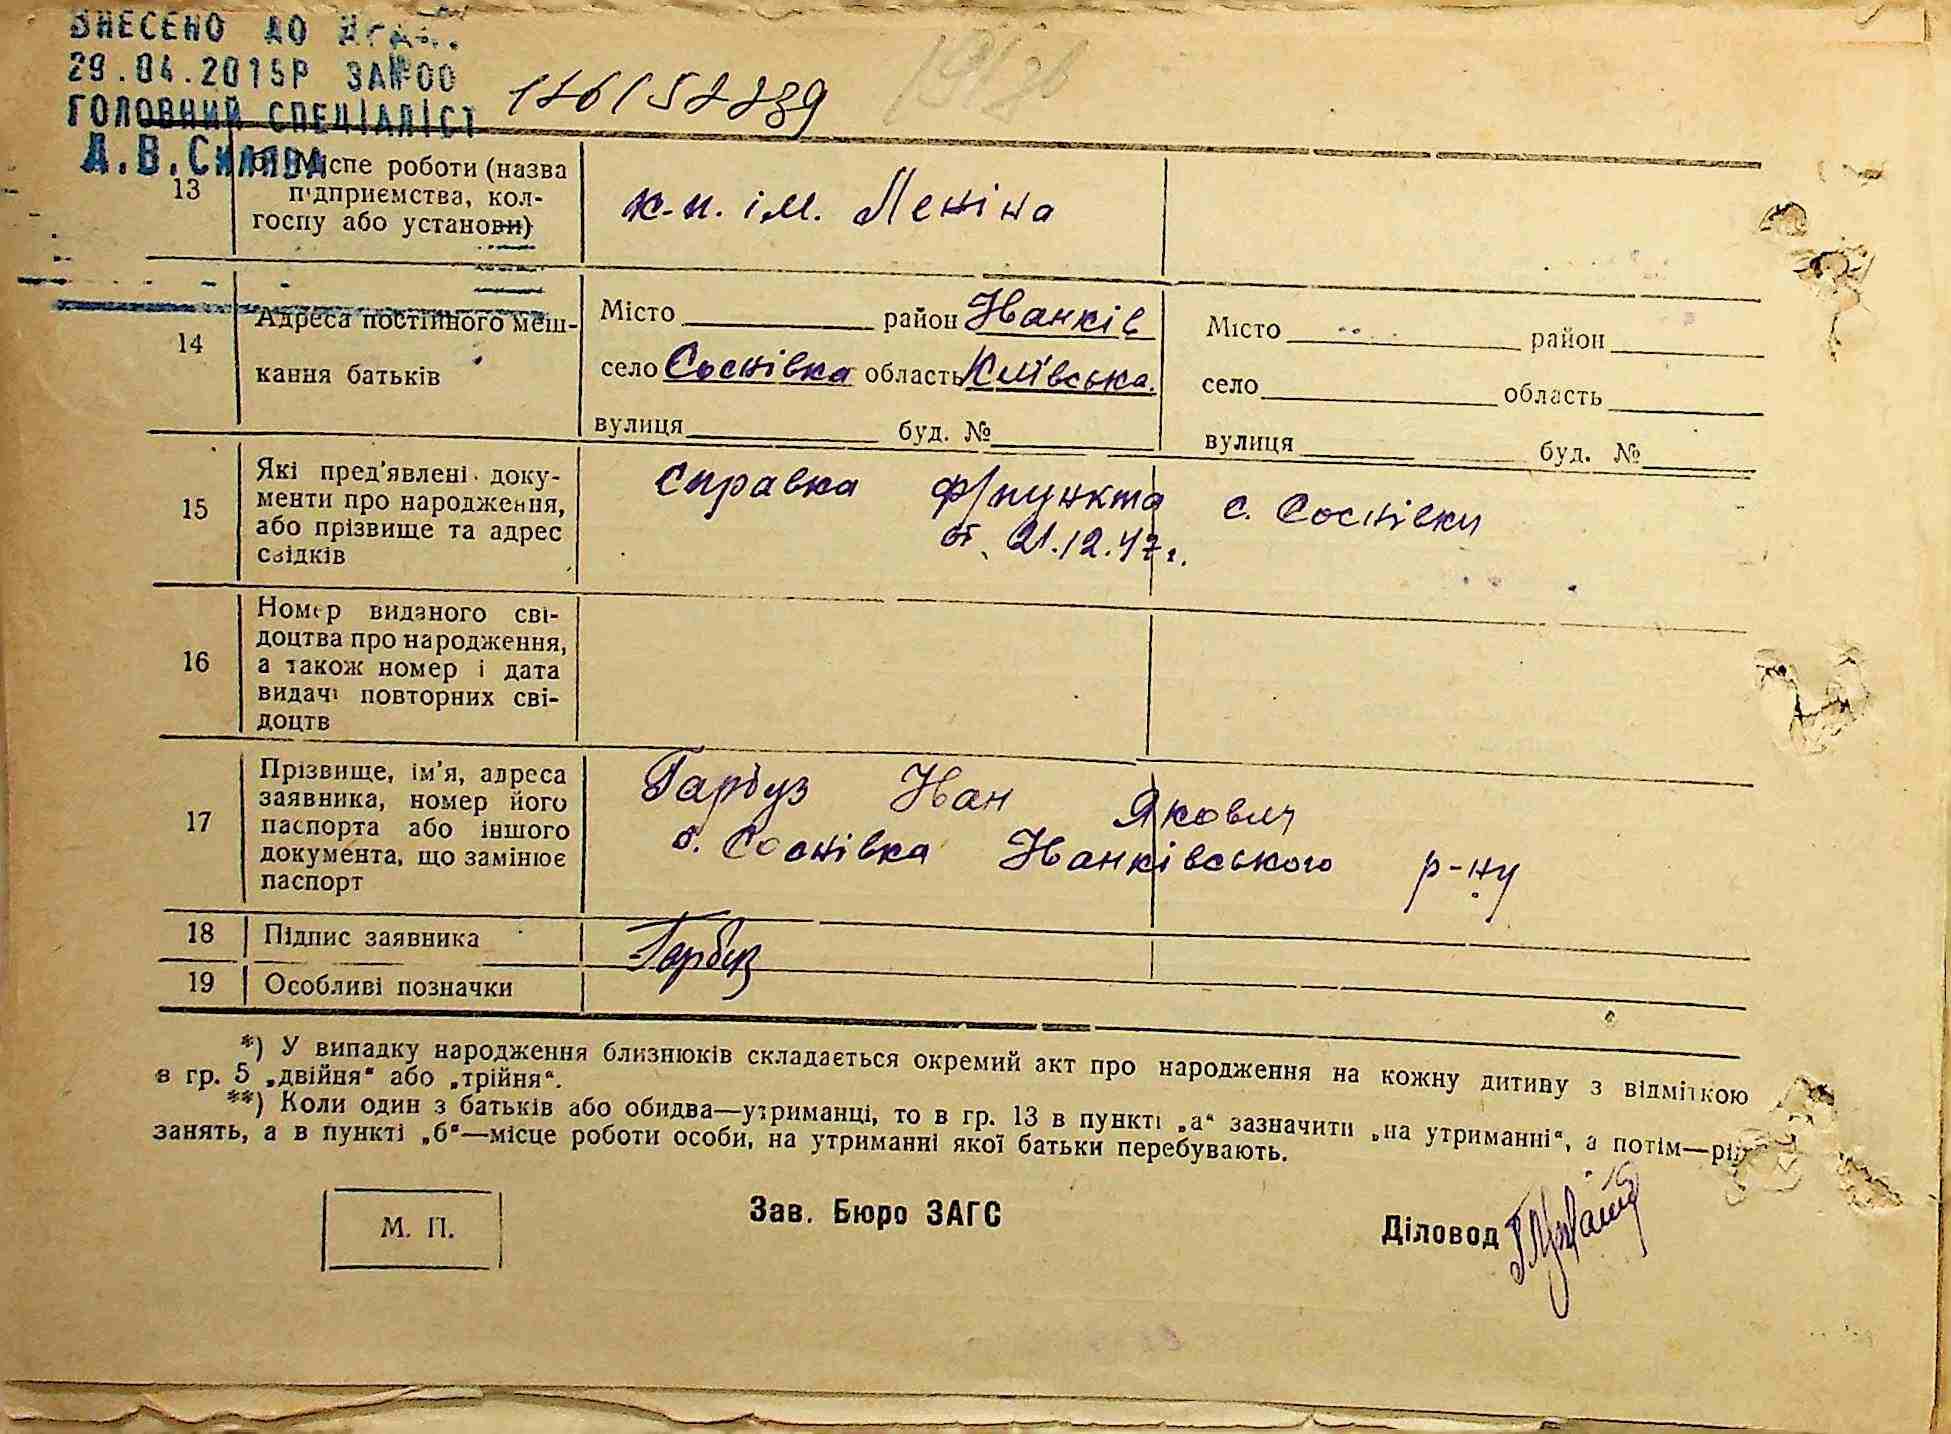 ВНЕСЕНО ДО
29.04.2015Р ЗА№00
ГОЛОВНИЙ СПЕЦІАЛІСТ
Д.В.Силява
13
б) Місце роботи (назва
підприємства, кол-
госпу або установи)
к-п. ім. Леніна
14
Адреса постійного меш-
кання батьків
Місто район Іванків
село Соснівка область Київська.
вулиця буд. №
Місто район
село область
вулиця буд. №
15
Які пред'явлені доку-
менти про народження,
або прізвище та адрес
свідків
справка ф/пункта с. Соснівки
от 21.12.47 г.
16
Номер виданого сві-
доцтва про народження,
а також номер і дата
видачі повторних сві-
доцтв
17
Прізвище, ім'я, адреса
заявника, номер його
паспорта або іншого
документа, що замінює
паспорт
Гарбуз Іван Якович
с. Соснівка Іванківського р-ну
18
Підпис заявника
Гарбуз
19
Особливі позначки
*) У випадку народження близнюків складається окремий акт про народження на кожну дитину з відміткою
в гр. 5 „двійня“ або „трійня“.
**) Коли один з батьків або обидва—утриманці, то в гр. 13 в пункті „а“ зазначити „на утриманні“, а потім—рід
занять, а в пункті „б“—місце роботи особи, на утриманні якої батьки перебувають.
М. П.
Зав. Бюро ЗАГС
Діловод